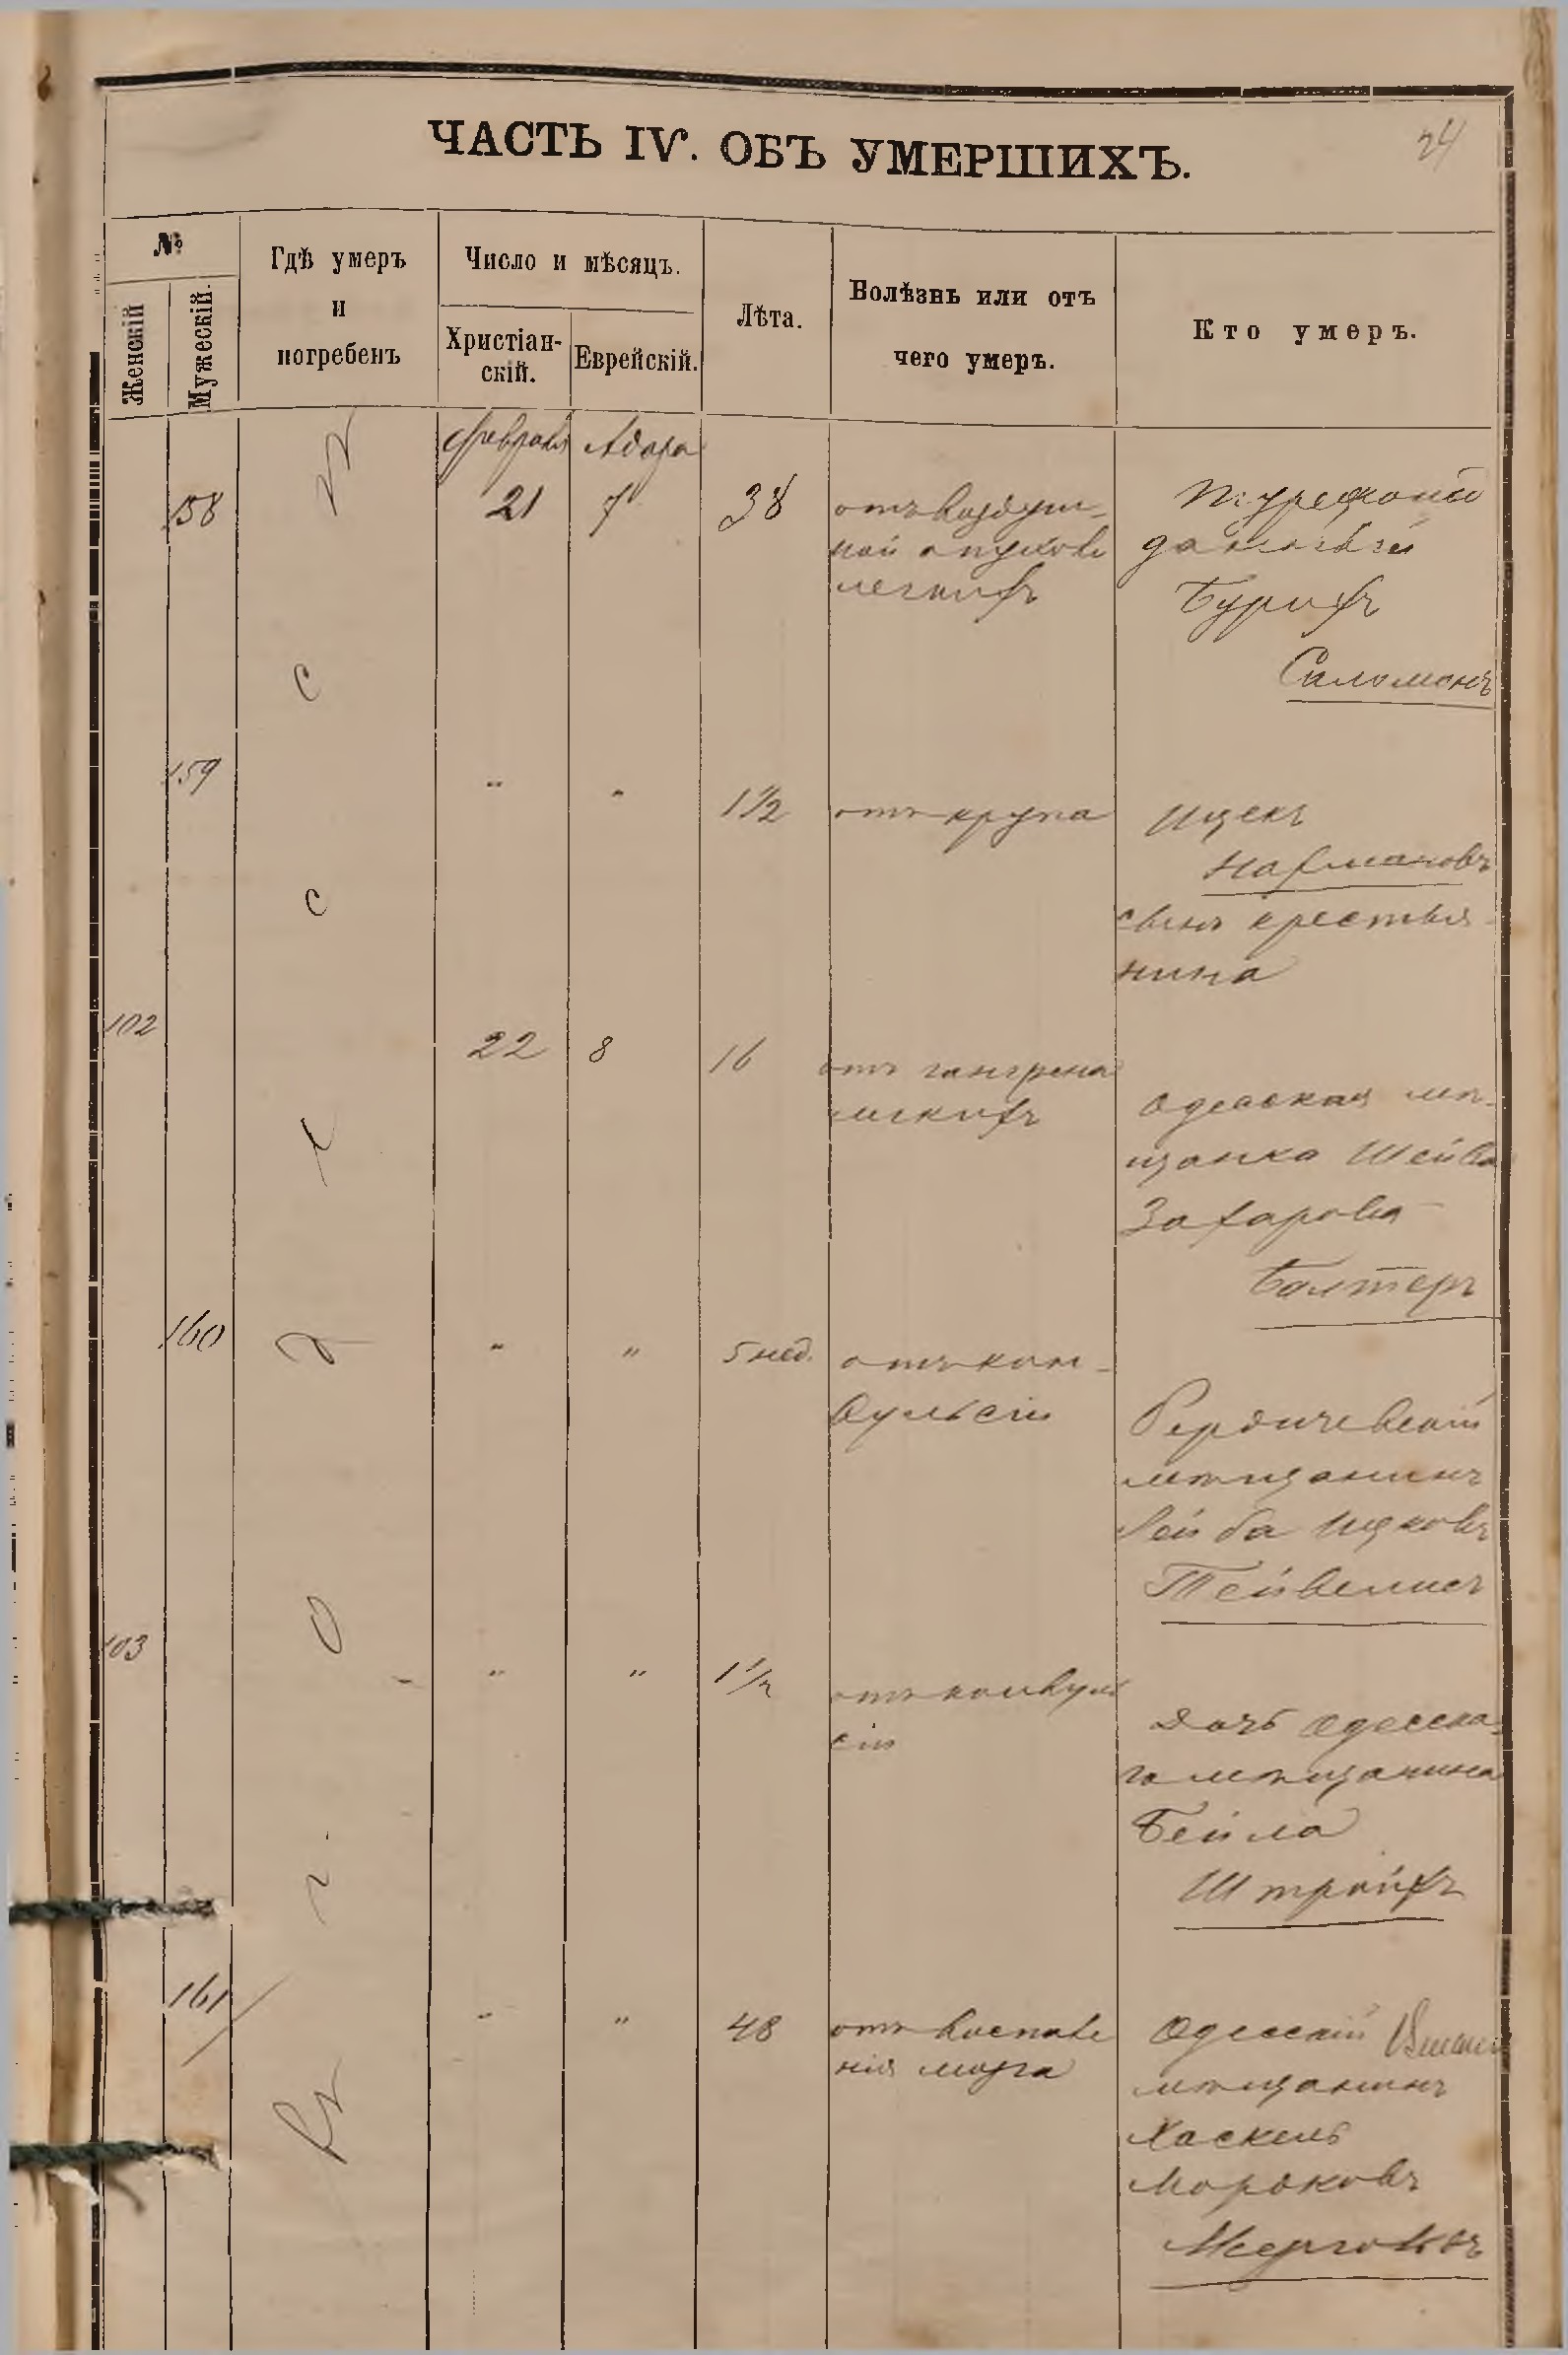 ЧАСТЬ IV. ОБЪ УМЕРШИХЪ.
24
№
Женскій
Мужескій.
Гдѣ умеръ
и
погребенъ
Число и мѣсяцъ.
Христіан-
скій.
Еврейскій.
Лѣта.
Болѣзнь или отъ
чего умеръ.
Кто умеръ.
Февраля Адара
158 21 7 38
отъ воздуш-
ной опухоли
легкихъ
Турецкий
Бурихъ
Саломонъ
159 " " 1 1/2
отъ крупа
Ицекъ
Нафмановъ
сынъ крестья-
нина
102 22 8 16
отъ гангрена
легкихъ
Одесская мѣ-
щанка Шейва
Захарова
Балтеръ
160 " " 5 нед.
отъ кон-
вульсіи
Бердичевскій
мѣщанинъ
Лейба Ицковъ
Тейвелисъ
103 " " 1 1/2
отъ конвуль
сіи
Дочь Одесска-
го мѣщанина
Бейла
Штрайхъ
161 " " 48
отъ воспале
нія мозга
Одесскій
мѣщанинъ
Хаскель
Мордковъ
въ
г.
О
д
е
с
с
ѣ